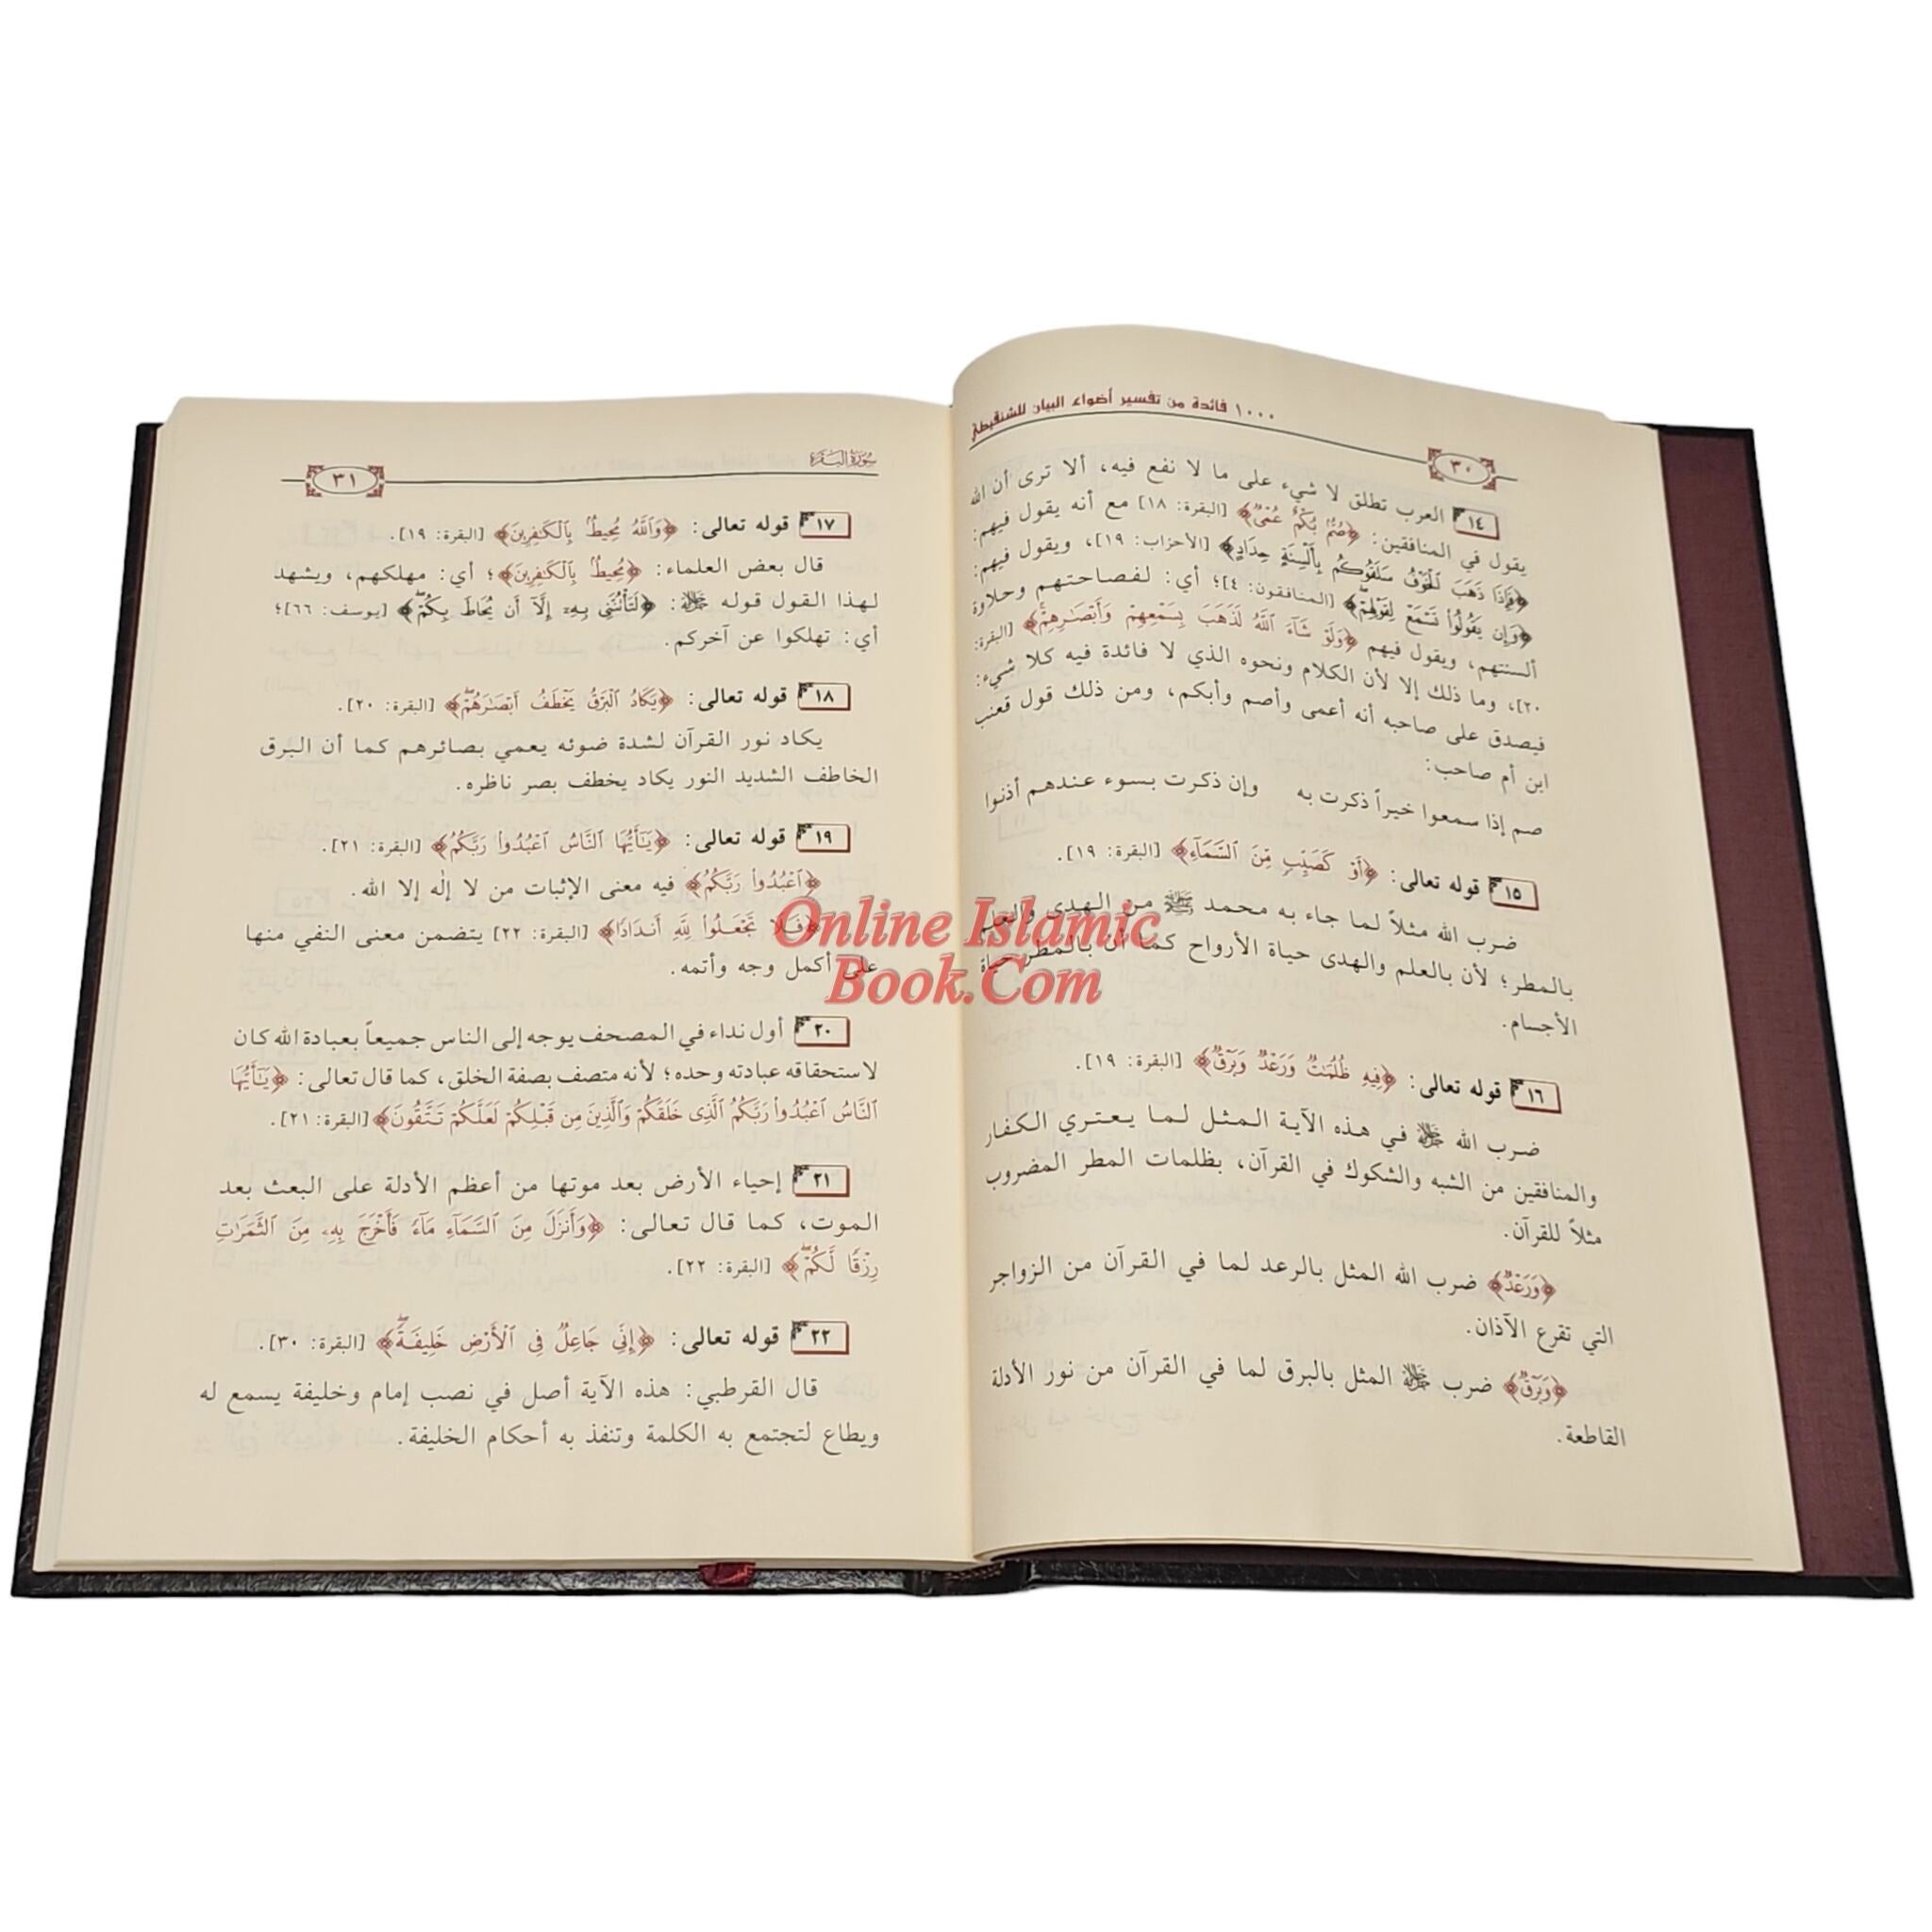 ١٠٠٠ فائدة من تفسير أضواء البيان للشنقيطي
٣٠
١٤ العرب تطلق لا شيء على ما لا نفع فيه، ألا ترى أن الله
يقول في المنافقين: ﴿صُمٌّ بُكْمٌ عُمْىٌ﴾ [البقرة: ١٨] مع أنه يقول فيهم:
﴿فَإِذَا ذَهَبَ ٱلْخَوْفُ سَلَقُوكُم بِأَلْسِنَةٍ حِدَادٍ﴾ [الأحزاب: ١٩]، ويقول فيهم:
﴿وَإِن يَقُولُوا۟ تَسْمَعْ لِقَوْلِهِمْ﴾ [المنافقون: ٤]؛ أي: لفصاحتهم وحلاوة
ألسنتهم، ويقول فيهم ﴿وَلَوْ شَآءَ ٱللَّهُ لَذَهَبَ بِسَمْعِهِمْ وَأَبْصَـٰرِهِمْ﴾ [البقرة:
٢٠]، وما ذلك إلا لأن الكلام ونحوه الذي لا فائدة فيه كلا شيء:
فيصدق على صاحبه أنه أعمى وأصم وأبكم، ومن ذلك قول قعنب
ابن أم صاحب:
صم إذا سمعوا خيراً ذكرت به وإن ذكرت بسوء عندهم أذنوا
١٥ قوله تعالى: ﴿أَوْ كَصَيِّبٍ مِّنَ ٱلسَّمَآءِ﴾ [البقرة: ١٩].
ضرب الله مثلاً لما جاء به محمد ﷺ من الهدى والعلم
بالمطر؛ لأن بالعلم والهدى حياة الأرواح كما أن بالمطر حياة
الأجسام.
١٦ قوله تعالى: ﴿فِيهِ ظُلُمَـٰتٌ وَرَعْدٌ وَبَرْقٌ﴾ [البقرة: ١٩].
ضرب الله ﷻ في هذه الآية المثل لما يعتري الكفار
والمنافقين من الشبه والشكوك في القرآن، بظلمات المطر المضروب
مثلاً للقرآن.
﴿وَرَعْدٌ﴾ ضرب الله المثل بالرعد لما في القرآن من الزواجر
التي تقرع الآذان.
﴿وَبَرْقٌ﴾ ضرب ﷻ المثل بالبرق لما في القرآن من نور الأدلة
القاطعة.
سورة البقرة
٣١
١٧ قوله تعالى: ﴿وَٱللَّهُ مُحِيطٌۢ بِٱلْكَـٰفِرِينَ﴾ [البقرة: ١٩].
قال بعض العلماء: ﴿مُحِيطٌۢ بِٱلْكَـٰفِرِينَ﴾؛ أي: مهلكهم، ويشهد
لهذا القول قوله ﷻ: ﴿لَتَأْتُنَّنِى بِهِۦٓ إِلَّآ أَن يُحَاطَ بِكُمْ﴾ [يوسف: ٦٦]؛
أي: تهلكوا عن آخركم.
١٨ قوله تعالى: ﴿يَكَادُ ٱلْبَرْقُ يَخْطَفُ أَبْصَـٰرَهُمْ﴾ [البقرة: ٢٠].
يكاد نور القرآن لشدة ضوئه يعمي بصائرهم كما أن البرق
الخاطف الشديد النور يكاد يخطف بصر ناظره.
١٩ قوله تعالى: ﴿يَـٰٓأَيُّهَا ٱلنَّاسُ ٱعْبُدُوا۟ رَبَّكُمُ﴾ [البقرة: ٢١].
﴿ٱعْبُدُوا۟ رَبَّكُمُ﴾ فيه معنى الإثبات من لا إلٰه إلا الله.
﴿فَلَا تَجْعَلُوا۟ لِلَّهِ أَندَادًا﴾ [البقرة: ٢٢] يتضمن معنى النفي منها
على أكمل وجه وأتمه.
٢٠ أول نداء في المصحف يوجه إلى الناس جميعاً بعبادة الله كان
لاستحقاقه عبادته وحده؛ لأنه متصف بصفة الخلق، كما قال تعالى: ﴿يَـٰٓأَيُّهَا
ٱلنَّاسُ ٱعْبُدُوا۟ رَبَّكُمُ ٱلَّذِى خَلَقَكُمْ وَٱلَّذِينَ مِن قَبْلِكُمْ لَعَلَّكُمْ تَتَّقُونَ﴾ [البقرة: ٢١].
٢١ إحياء الأرض بعد موتها من أعظم الأدلة على البعث بعد
الموت، كما قال تعالى: ﴿وَأَنزَلَ مِنَ ٱلسَّمَآءِ مَآءً فَأَخْرَجَ بِهِۦ مِنَ ٱلثَّمَرَٰتِ
رِزْقًا لَّكُمْ﴾ [البقرة: ٢٢].
٢٢ قوله تعالى: ﴿إِنِّى جَاعِلٌ فِى ٱلْأَرْضِ خَلِيفَةً﴾ [البقرة: ٣٠].
قال القرطبي: هذه الآية أصل في نصب إمام وخليفة يسمع له
ويطاع لتجتمع به الكلمة وتنفذ به أحكام الخليفة.
Online Islamic
Book.Com